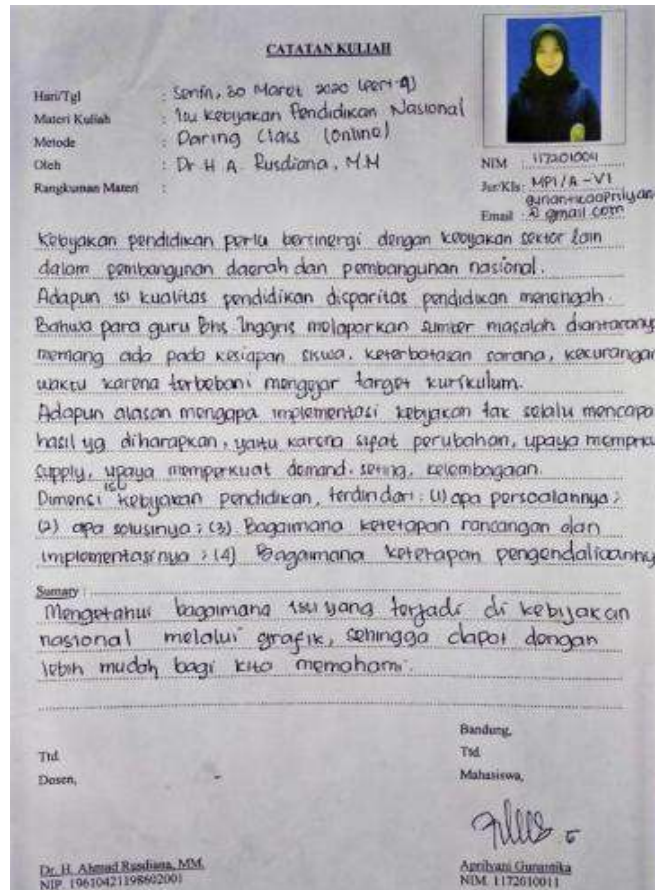 CATATAN KULIAH
Hari/Tgl : Senin, 30 Maret 2020 (pert-9)
Materi Kuliah : Isu Kebijakan Pendidikan Nasional
Metode : Daring Class (Online)
Oleh : Dr H A. Rusdiana, M.M
Rangkuman Materi :
NIM : 117201004
Jur/Kls : MPI/A-VI
Email : @gmail.com
Kebijakan pendidikan perlu bersinergi dengan kebijakan sektor lain
dalam pembangunan daerah dan pembangunan nasional.
Adapun isi kualitas pendidikan disparitas pendidikan menengah.
Bahwa para guru Bhs Inggris melaporkan sumber masalah diantarany
memang ada pada kesiapan siswa, keterbatasan sarana, kekurangan
waktu karena terbebani mengejar target kurikulum.
Adapun alasan mengapa implementasi kebijakan tak selalu mencapa
hasil yg diharapkan, yaitu karena sifat perubahan, upaya memperku
supply, upaya memperkuat demand, seting, kelembagaan.
Dimensi isu kebijakan pendidikan, terdiri dari : (1) apa persoalannya ;
(2) apa solusinya ; (3) Bagaimana ketetapan rancangan dan
implementasinya ; (4) Bagaimana ketetapan pengendaliannny
Sumary :
Mengetahui bagaimana isu yang terjadi di kebijakan
nasional melalui grafik, sehingga dapat dengan
lebih mudah bagi kita memahami.
Bandung,
Ttd Ttd
Dosen, Mahasiswa,
Dr. H. Ahmad Rusdiana, MM. Aprilyani Gunantika
NIP. 19610421198602001 NIM. 1172010011